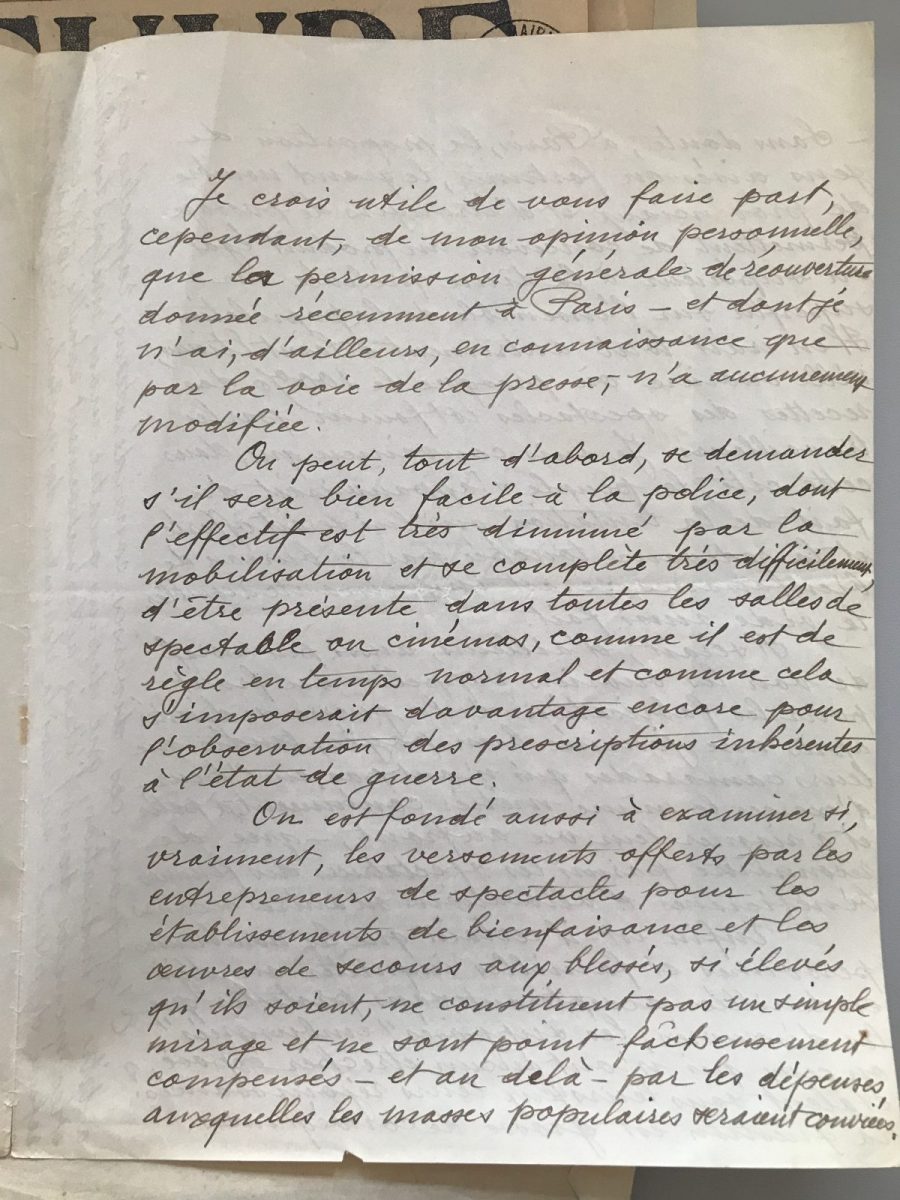 Je crois utile de vous faire part,
cependant, de mon opinion personnelle,
que la permission générale de réouverture
donnée récemment à Paris – et dont je
n'ai, d'ailleurs, eu connaissance que
par la voie de la presse, – n'a aucunement
modifiée.
On peut, tout d'abord, se demander
s'il sera bien facile à la police, dont
l'effectif est très diminué par la
mobilisation et se complète très difficilement,
d'être présente dans toutes les salles de
spectacle ou cinémas, comme il est de
règle en temps normal et comme cela
s'imposerait davantage encore pour
l'observation des prescriptions inhérentes
à l'état de guerre.
On est fondé aussi à examiner si,
vraiment, les versements offerts par les
entrepreneurs de spectacles pour les
établissements de bienfaisance et les
œuvres de secours aux blessés, si élevés
qu'ils soient, ne constituent pas un simple
mirage et ne sont point fâcheusement
compensés – et au delà – par les dépenses
auxquelles les masses populaires seraient conviées.